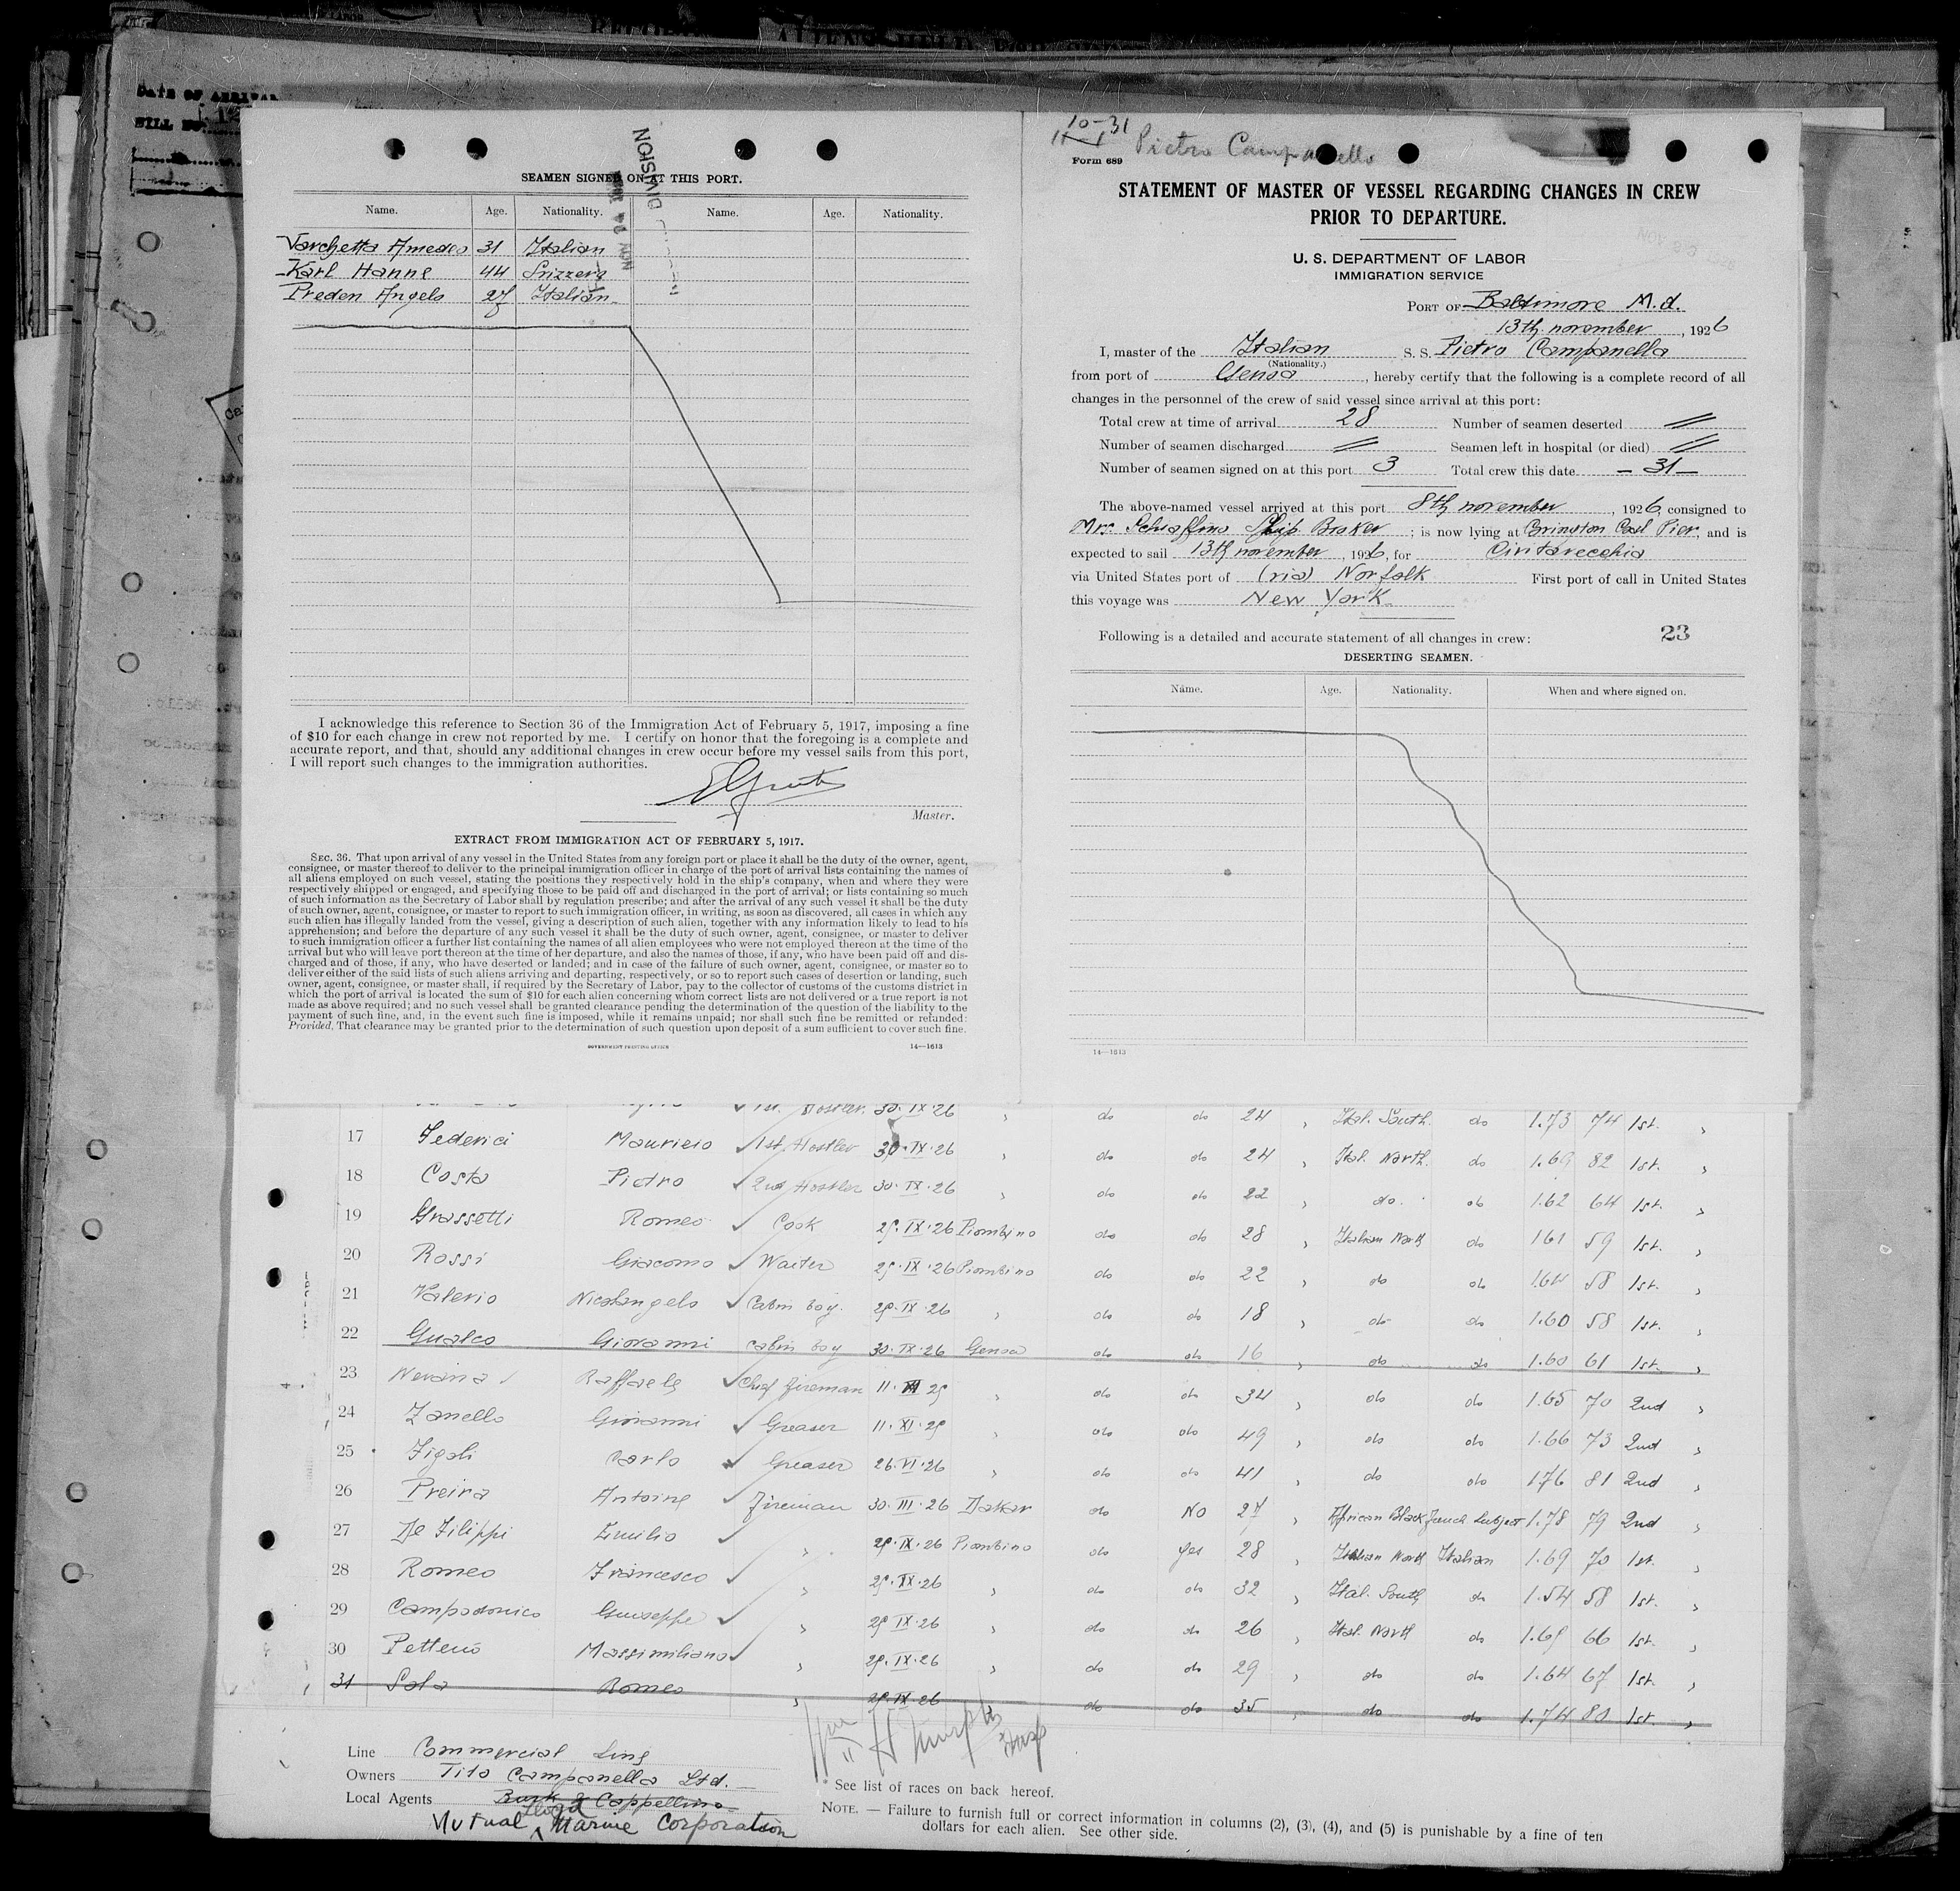 DATE OF ARRIVAL
SEAMEN SIGNED ON AT THIS PORT.
DIVISION
Name. Age. Nationality. Name. Age. Nationality.
Varchetta Amedeo 31 Italian
Karl Hanne 44 Svizzera
Preden Angelo 27 Italian
I acknowledge this reference to Section 36 of the Immigration Act of February 5, 1917, imposing a fine
of $10 for each change in crew not reported by me. I certify on honor that the foregoing is a complete and
accurate report, and that, should any additional changes in crew occur before my vessel sails from this port,
I will report such changes to the immigration authorities.
Master.
EXTRACT FROM IMMIGRATION ACT OF FEBRUARY 5, 1917.
SEC. 36. That upon arrival of any vessel in the United States from any foreign port or place it shall be the duty of the owner, agent,
consignee, or master thereof to deliver to the principal immigration officer in charge of the port of arrival lists containing the names of
all aliens employed on such vessel, stating the positions they respectively hold in the ship's company, when and where they were
respectively shipped or engaged, and specifying those to be paid off and discharged in the port of arrival; or lists containing so much
of such information as the Secretary of Labor shall by regulation prescribe; and after the arrival of any such vessel it shall be the duty
of such owner, agent, consignee, or master to report to such immigration officer, in writing, as soon as discovered, all cases in which any
such alien has illegally landed from the vessel, giving a description of such alien, together with any information likely to lead to his
apprehension; and before the departure of any such vessel it shall be the duty of such owner, agent, consignee, or master to deliver
to such immigration officer a further list containing the names of all alien employees who were not employed thereon at the time of the
arrival but who will leave port thereon at the time of her departure, and also the names of those, if any, who have been paid off and dis-
charged and of those, if any, who have deserted or landed; and in case of the failure of such owner, agent, consignee, or master so to
deliver either of the said lists of such aliens arriving and departing, respectively, or so to report such cases of desertion or landing, such
owner, agent, consignee, or master shall, if required by the Secretary of Labor, pay to the collector of customs of the customs district in
which the port of arrival is located the sum of $10 for each alien concerning whom correct lists are not delivered or a true report is not
made as above required; and no such vessel shall be granted clearance pending the determination of the question of the liability to the
payment of such fine, and, in the event such fine is imposed, while it remains unpaid; nor shall such fine be remitted or refunded:
Provided, That clearance may be granted prior to the determination of such question upon deposit of a sum sufficient to cover such fine.
GOVERNMENT PRINTING OFFICE 14—1613
10-31
Form 689 Pietro Campanello
STATEMENT OF MASTER OF VESSEL REGARDING CHANGES IN CREW
PRIOR TO DEPARTURE.
U. S. DEPARTMENT OF LABOR
IMMIGRATION SERVICE
PORT OF Baltimore M.d.
13th november, 1926
I, master of the Italian S. S. Pietro Campanella
(Nationality.)
from port of Genoa, hereby certify that the following is a complete record of all
changes in the personnel of the crew of said vessel since arrival at this port:
Total crew at time of arrival 28 Number of seamen deserted //
Number of seamen discharged // Seamen left in hospital (or died) //
Number of seamen signed on at this port 3 Total crew this date — 31 —
The above-named vessel arrived at this port 8th november, 1926, consigned to
Mrs. Schiaffino Ship Broker; is now lying at Coal Pier, and is
expected to sail 13th november, 1926, for Civitavecchia
via United States port of (via) Norfolk First port of call in United States
this voyage was New York
Following is a detailed and accurate statement of all changes in crew: 23
DESERTING SEAMEN.
Name. Age. Nationality. When and where signed on.
14—1613
1st. Hostler 30·IX·26 do do 24 Ital. South. do 1.73 74 1st.
17 Federici Mauricio 1st. Hostler 30·IX·26 do do 24 Ital. North. do 1.69 82 1st.
18 Costa Pietro 2nd Hostler 30·IX·26 do do 22 do do 1.62 64 1st.
19 Grassetti Romeo Cook 29·IX·26 Piombino do do 28 Italian North do 161 59 1st.
20 Rossi Giacomo Waiter 29·IX·26 Piombino do do 22 do do 1.64 58 1st.
21 Valerio Nicolangelo Cabin boy. 29·IX·26 do do 18 do do 1.60 58 1st.
22 Gualco Giovanni cabin boy 30·IX·26 Genoa do do 16 do do 1.60 61 1st.
23 Raffaele Chief fireman 11· 25 do do 34 do do 1.65 70 2nd
24 Zanello Giovanni Greaser 11·XI·25 do do 49 do do 1.66 73 2nd
25 Figoli Carlo Greaser 26·VI·26 do do 41 do do 1.76 81 2nd
26 Preira Antoine fireman 30·III·26 Dakar do No 27 African Black french Subject 1.78 79 2nd
27 De Filippi Emilio 29·IX·26 Piombino do yes 28 Italian North Italian 1.69 70 1st.
28 Romeo Francesco 29·IX·26 do do 32 Ital. South do 1.54 58 1st.
29 Campodonico Guiseppe 29·IX·26 do do 26 Ital. North do 1.69 66 1st.
30 Petteno Massimiliano 29·IX·26 do do 29 do do 1.64 67 1st.
31 Sola Romeo 29·IX·26 do do 35 do do 1.74 80 1st.
Line Commercial Line
Owners Tito Campanella Ltd.
Local Agents Burk & Cappellino
Mutual Lloyd Marine Corporation
* See list of races on back hereof.
NOTE. — Failure to furnish full or correct information in columns (2), (3), (4), and (5) is punishable by a fine of ten
dollars for each alien. See other side.